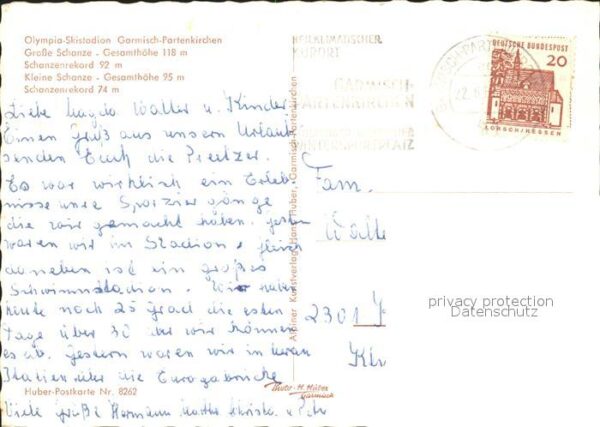 Olympia-Skistadion Garmisch-Partenkirchen
Große Schanze - Gesamthöhe 118 m
Schanzenrekord 92 m
Kleine Schanze - Gesamthöhe 95 m
Schanzenrekord 74 m
Liebe Magda Walter u. Kinder
Einen Gruß aus unserm Urlaub
senden Euch die Preetzer.
Es war wirklich ein Erleb-
nisse unre Spazier gänge
die wir gemacht haben. Gestern
waren wir im Stadion, gleich
daneben ist ein großes
Schwimmstadion. Wir haben
heute noch 25 Grad die ersten
Tage über 30 aber wir können
es ab. Gestern waren wir in
Italien über die Europabrücke
Viele Grüße Hermann
Huber-Postkarte Nr. 8262
Alpiner Kunstverlag Hans Huber, Garmisch-Partenkirchen
Photo-H. Huber
Garmisch
HEILKLIMATISCHER
KURORT
GARMISCH-
PARTENKIRCHEN
WINTERSPORTPLATZ
DEUTSCHE BUNDESPOST
20
LORSCH/HESSEN
Fam.
2301
privacy protection
Datenschutz